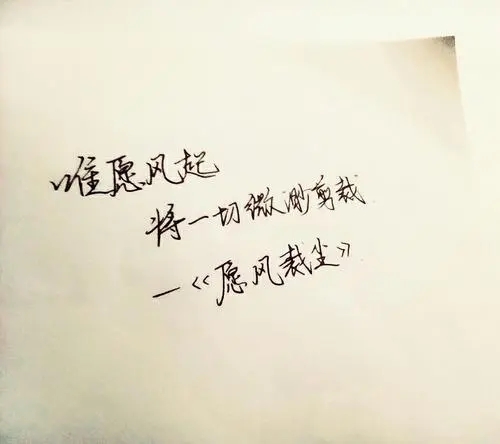 唯愿风起
将一切微渺剪裁
—《愿风裁尘》